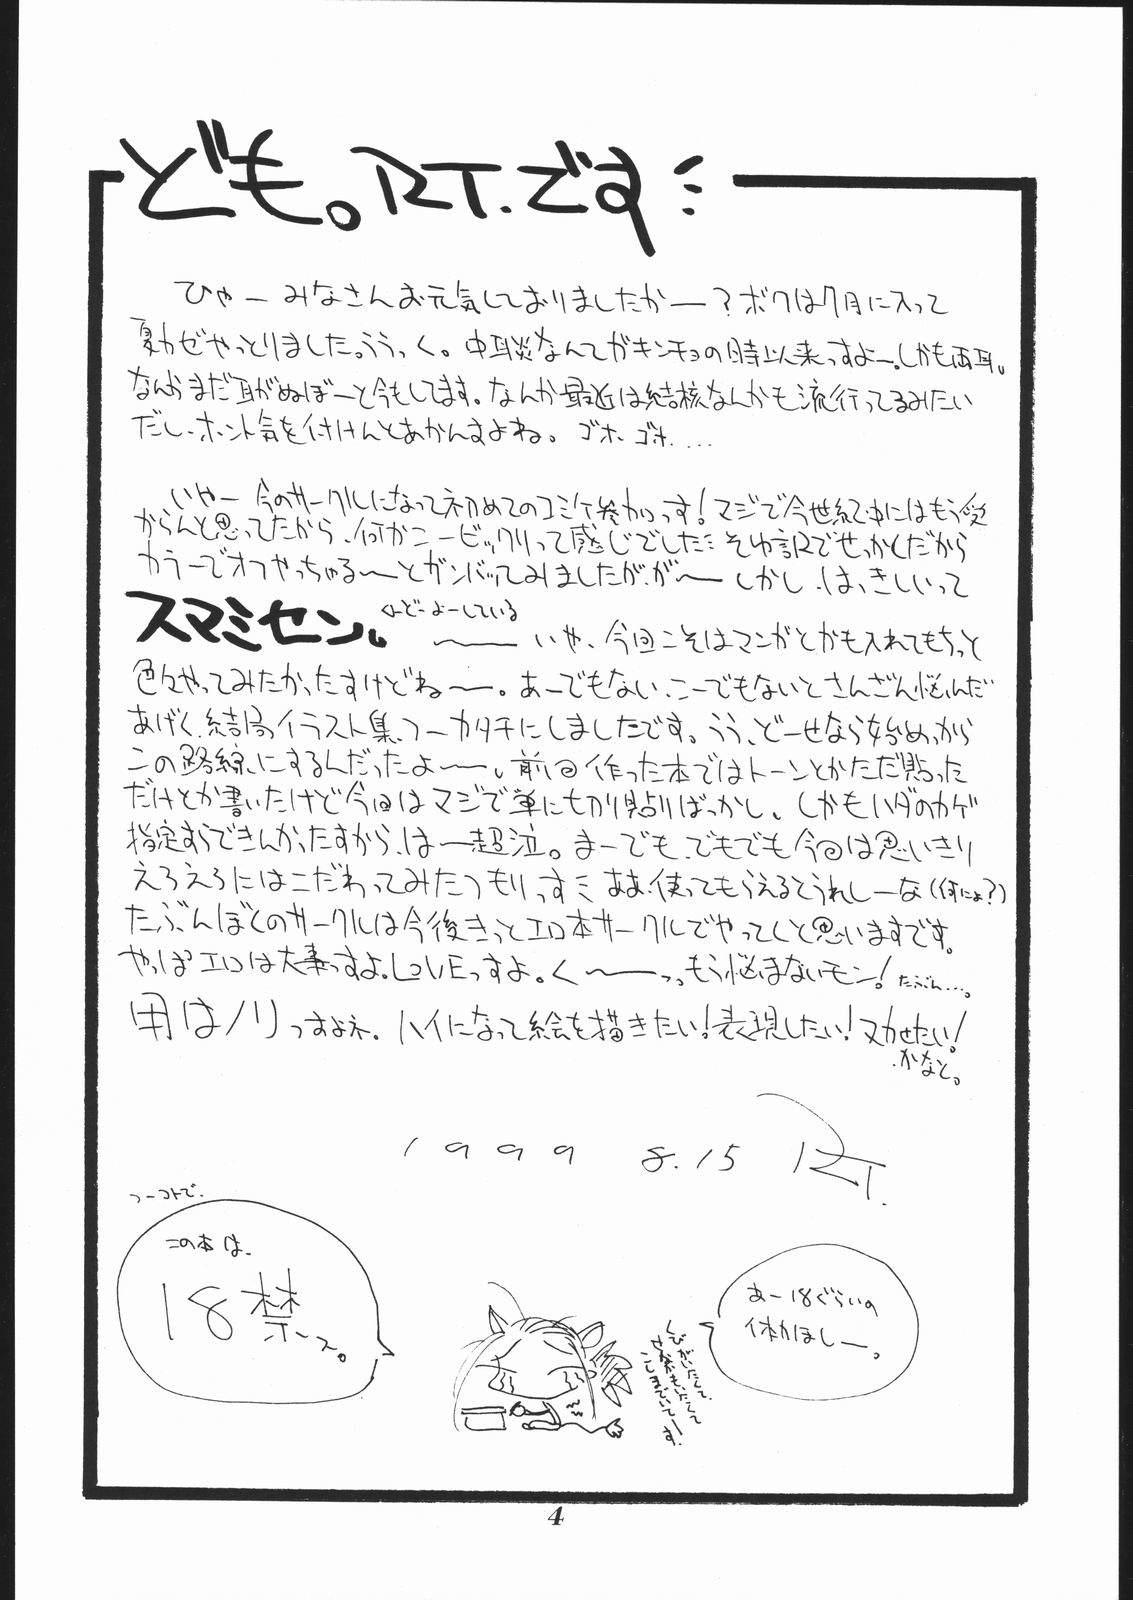 ども。RT.です
ひゃーみなさんお元気しておりましたかー?ボクは7月に入って
夏カゼやっとりました。ううっく。中耳炎なんてガキンチョの時以来っすよー。しかも両耳。
なんかまだ耳がぬぼーと今もしてます。なんか最近は結核なんかも流行ってるみたい
だし、ホント気を付けんとあかんすよね。ゴホ、ゴホ....
いやー今のサークルになって初めてのコミケ参加っす!マジで今世紀中にはもう受
からんと思ってたから、何かこービックリって感じでした そゆ訳でせっかくだから
カラーでオフやっちゃる〜とガンバッてみましたが、が〜しかし、は、きしいって
スマミセン。 ←どーよーしている
〜いや、今回こそはマンガとかも入れてもちっと
色々やってみたかったすけどね〜。あーでもない、こーでもないとさんざん悩んだ
あげく、結局イラスト集、つーカタチにしましたです。うう、どーせなら始めっから
この路線にするんだったよ〜。前回作った本ではトーンとかただ貼った
だけとか書いたけど今回はマジで単に切り貼りばっかし、しかもハダのカゲ
指定すらできんかったすから、はー超泣。まーでも、でもでも今回は思いきり
えろえろにはこだわってみたつもりっす ああ、使ってもらえるとうれしーな(何によ?)
たぶんぼくのサークルは今後きっとエロ本サークルでやってくと思いますです。
やっぱエロは大事っすよ。LOVEっすよ。く〜っっもう悩まないモン!たぶん...。
用はノリっすよネ。ハイになって絵を描きたい!表現したい!ヌカせたい!
かなと。
1999 8.15 RT.
つーコトで、
この本は、
18禁っス。
くびがいたくて、
せなかもいたくて
こしまでいてーす。
あー18ぐらいの
体力ほしー。
4